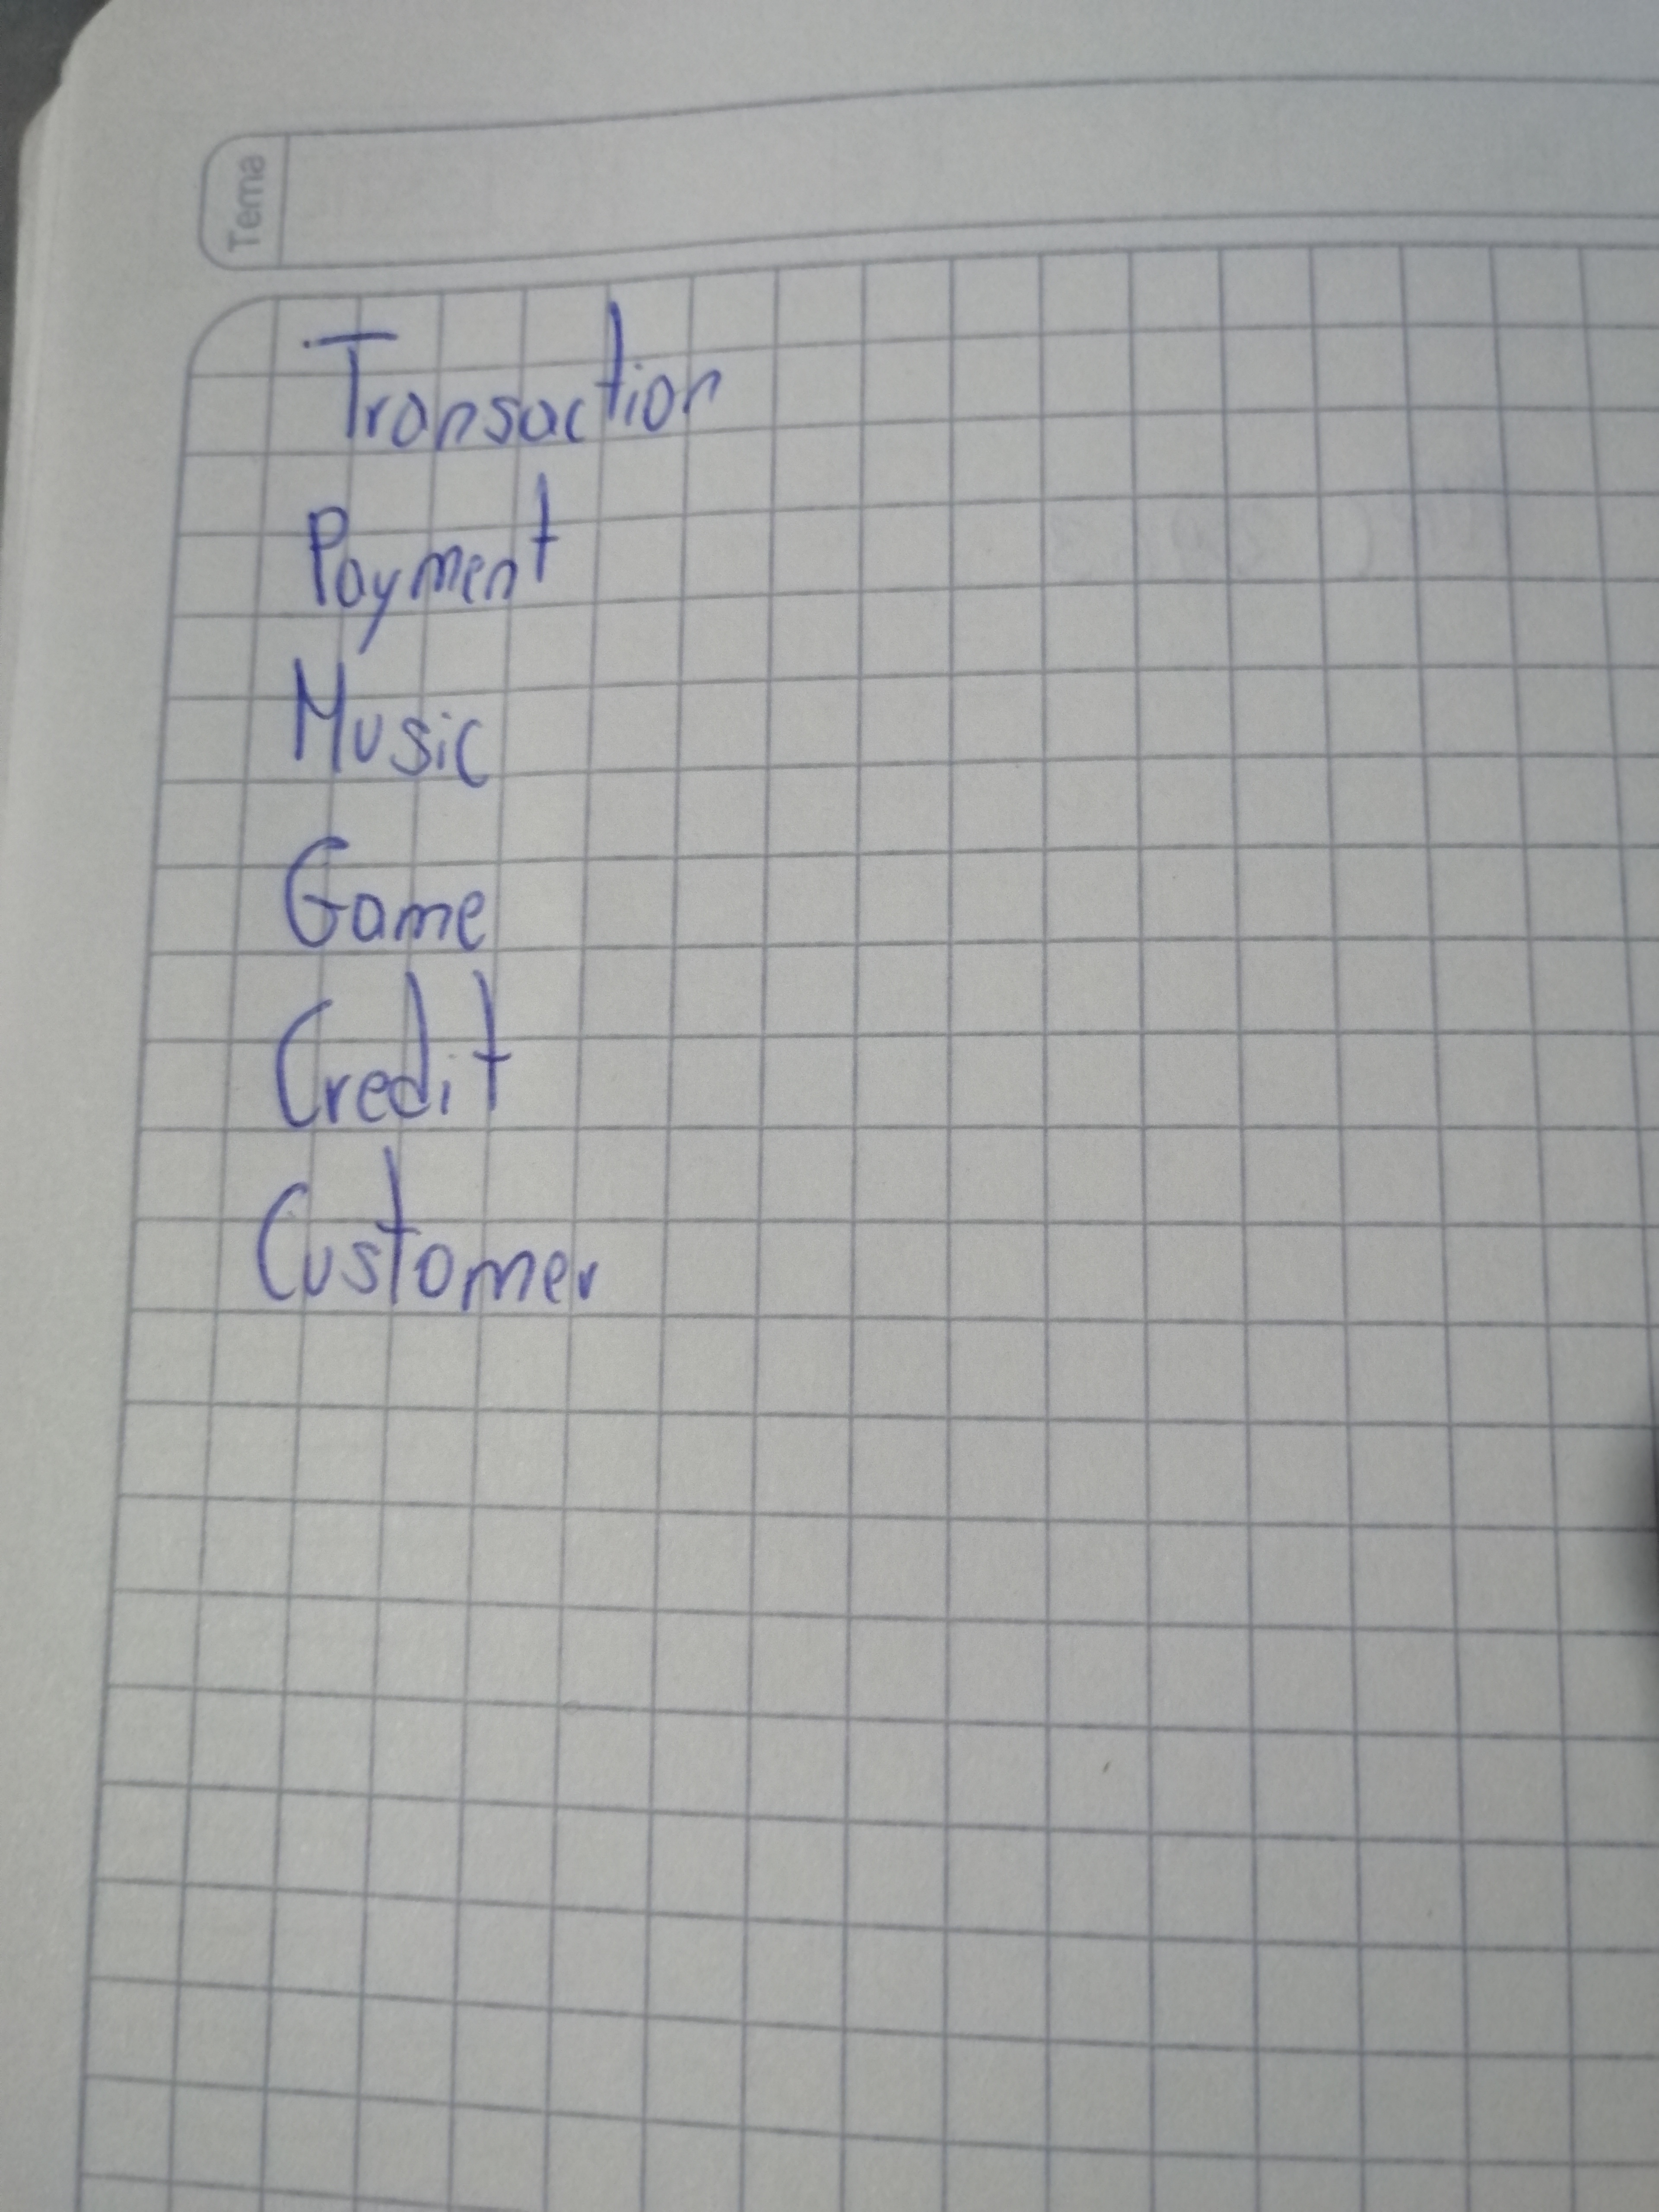 Tema
Transaction
Payment
Music
Game
Credit
Customer